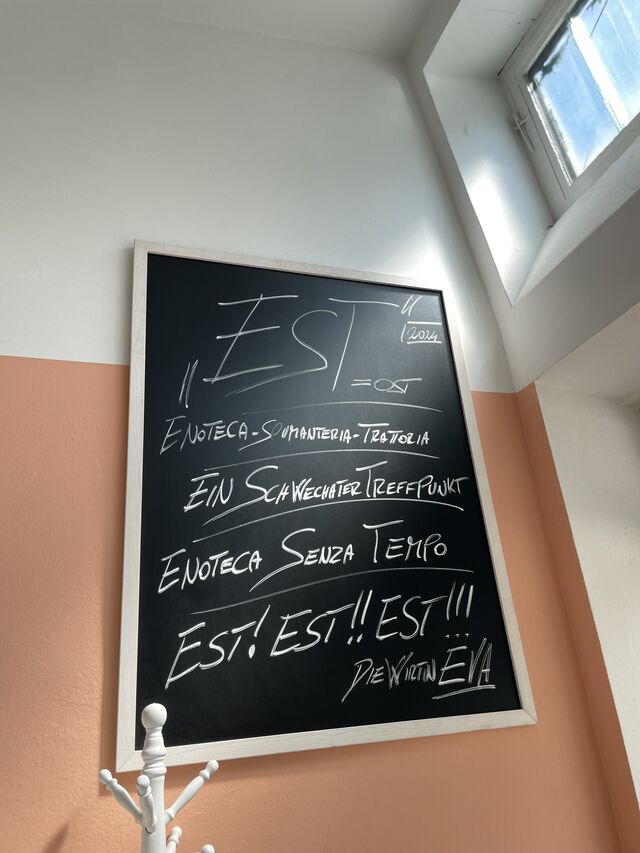 „EST“
2024
=OST
ENOTECA-SPUMANTERIA-TRATTORIA
EIN SCHWECHATER TREFFPUNKT
ENOTECA SENZA TEMPO
EST! EST!! EST!!!
DIE WIRTIN EVA